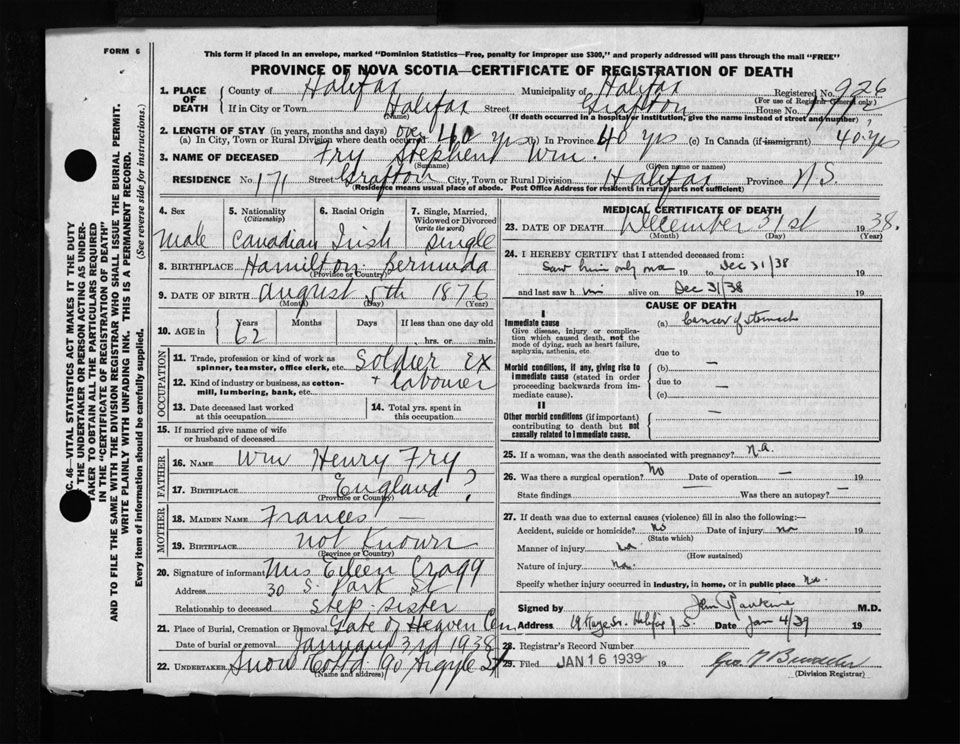 FORM 6
This form if placed in an envelope, marked "Dominion Statistics—Free, penalty for improper use $300," and properly addressed will pass through the mail "FREE"
PROVINCE OF NOVA SCOTIA—CERTIFICATE OF REGISTRATION OF DEATH
1. PLACE OF DEATH
County of Halifax Municipality of Halifax Registered No. 926
(For use of Registrar General only)
If in City or Town Halifax Street Grafton House No. 171
(Name)
(If death occurred in a hospital or institution, give the name instead of street and number)
2. LENGTH OF STAY (in years, months and days)
(a) In City, Town or Rural Division where death occurred over 40 yrs (b) In Province 40 yrs (c) In Canada (if immigrant) 40 yrs
3. NAME OF DECEASED Fry Stephen Wm.
(Surname) (Given name or names)
RESIDENCE No. 171 Street Grafton City, Town or Rural Division Halifax Province N.S.
(Residence means usual place of abode. Post Office Address for residents in rural parts not sufficient)
4. Sex Male
5. Nationality (Citizenship) Canadian
6. Racial Origin Irish
7. Single, Married, Widowed or Divorced (write the word) Single
8. BIRTHPLACE Hamilton Bermuda
(Province or Country)
9. DATE OF BIRTH August 5th 1876
(Month) (Day) (Year)
10. AGE in Years 62 Months Days If less than one day old
hrs. or min.
OCCUPATION
11. Trade, profession or kind of work as spinner, teamster, office clerk, etc. Soldier Ex
12. Kind of industry or business, as cotton-mill, lumbering, bank, etc. + labourer
13. Date deceased last worked at this occupation
14. Total yrs. spent in this occupation
15. If married give name of wife or husband of deceased
FATHER
16. NAME Wm Henry Fry
17. BIRTHPLACE England ?
(Province or Country)
MOTHER
18. MAIDEN NAME Frances —
19. BIRTHPLACE not Known
(Province or Country)
20. Signature of informant Mrs Eileen Cragg
Address 30 S. Park St
Relationship to deceased step sister
21. Place of Burial, Cremation or Removal Gate of Heaven Cem
Date of burial or removal January 3rd 1938
22. UNDERTAKER Snow 90 Argyle St
(Name and address)
MEDICAL CERTIFICATE OF DEATH
23. DATE OF DEATH December 31st 1938.
(Month) (Day) (Year)
24. I HEREBY CERTIFY that I attended deceased from:
Saw him only once 19 to Dec 31/38 19
and last saw h im alive on Dec 31/38 19
CAUSE OF DEATH
I
Immediate cause
Give disease, injury or complication which caused death, not the mode of dying, such as heart failure, asphyxia, asthenia, etc.
(a) Cancer of stomach
due to
Morbid conditions, if any, giving rise to immediate cause (stated in order proceeding backwards from immediate cause).
(b) —
due to —
(c)
II
Other morbid conditions (if important) contributing to death but not causally related to immediate cause.
—
25. If a woman, was the death associated with pregnancy? n.a.
26. Was there a surgical operation? No Date of operation — 19
State findings — Was there an autopsy? -
27. If death was due to external causes (violence) fill in also the following:—
Accident, suicide or homicide? no Date of injury na 19
(State which)
Manner of injury na
(How sustained)
Nature of injury na.
Specify whether injury occurred in industry, in home, or in public place na.
Signed by John Rankine M.D.
Address Halifax N.S. Date Jan 4/39 19
28. Registrar's Record Number
29. Filed JAN 16 1939 19
(Division Registrar)
C. 46—VITAL STATISTICS ACT MAKES IT THE DUTY
THE UNDERTAKER OR PERSON ACTING AS UNDER-
TAKER TO OBTAIN ALL THE PARTICULARS REQUIRED
IN THE "CERTIFICATE OF REGISTRATION OF DEATH"
AND TO FILE THE SAME WITH THE DIVISION REGISTRAR WHO SHALL ISSUE THE BURIAL PERMIT.
WRITE PLAINLY WITH UNFADING INK. THIS IS A PERMANENT RECORD.
Every item of information should be carefully supplied. (See reverse side for instructions.)